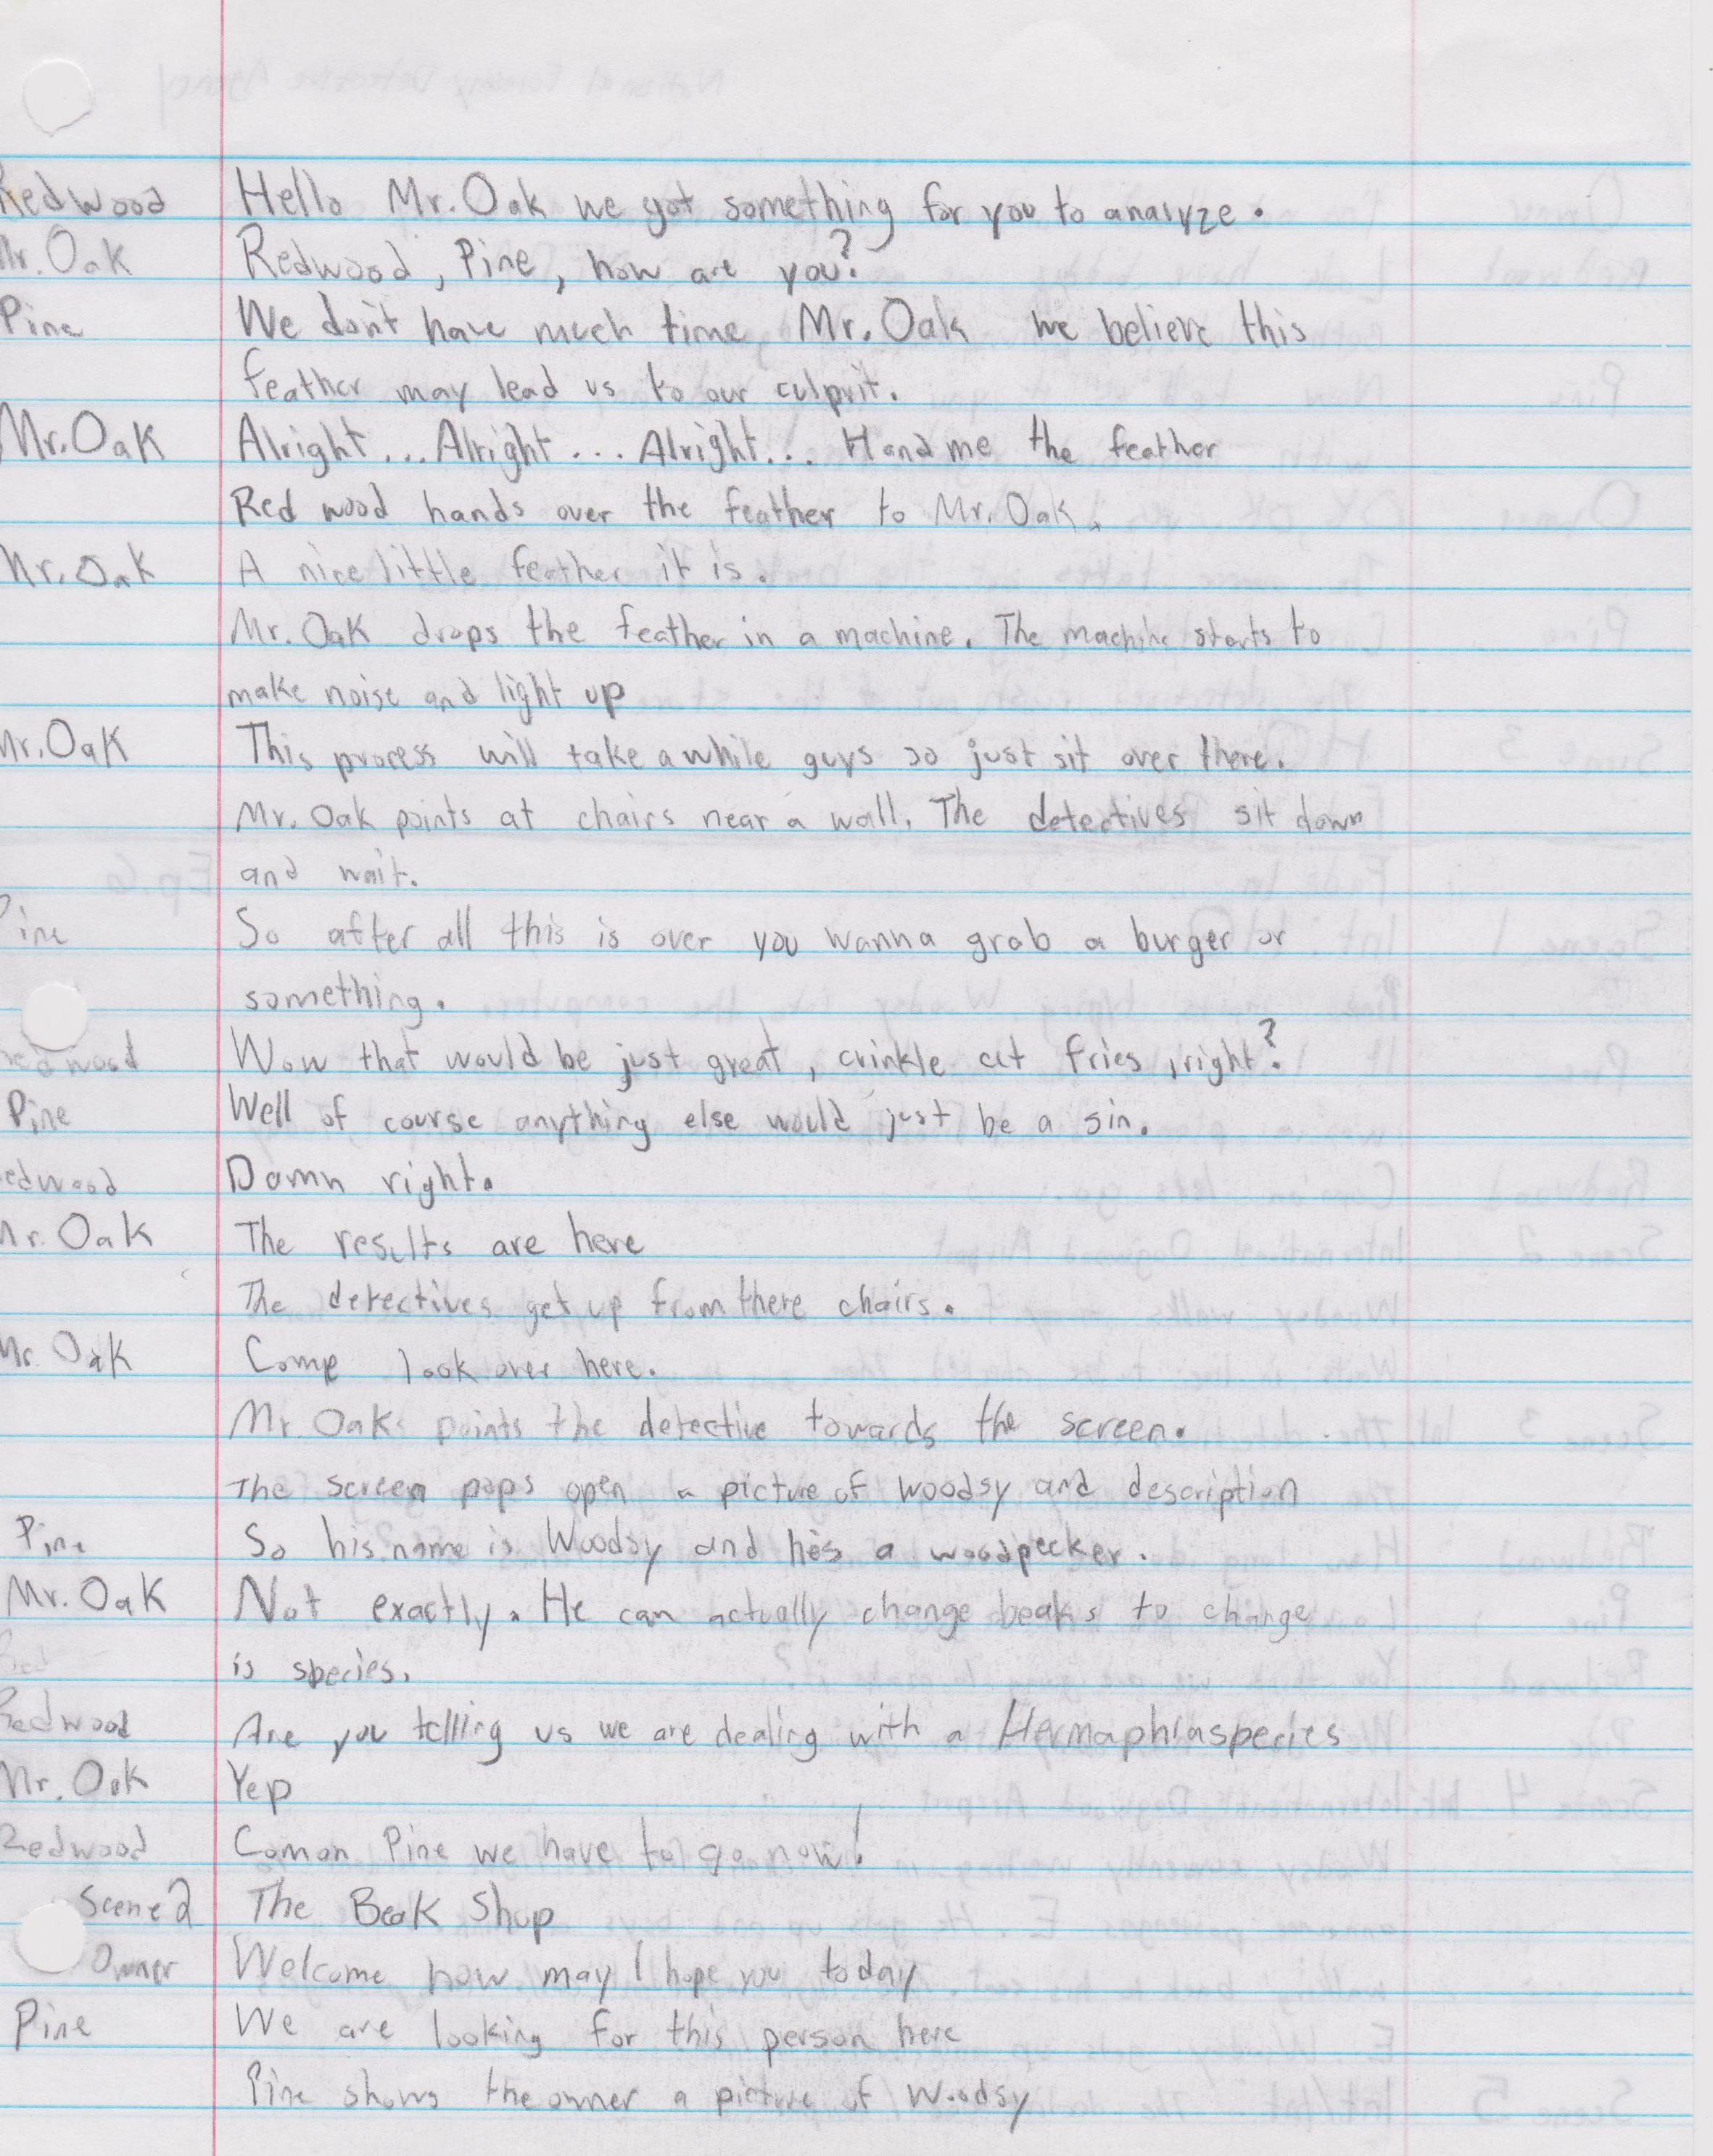 Redwood Hello Mr. Oak we got something for you to analyze.
Mr. Oak Redwood, Pine, how are you?
Pine We don't have much time Mr. Oak we believe this
feather may lead us to our culprit.
Mr. Oak Alright... Alright... Alright... Hand me the feather
Red wood hands over the feather to Mr. Oak.
Mr. Oak A nice little feather it is.
Mr. Oak drops the feather in a machine. The machine starts to
make noise and light up
Mr. Oak This process will take a while guys so just sit over there.
Mr. Oak points at chairs near a wall. The detectives sit down
and wait.
Pine So after all this is over you wanna grab a burger or
something.
Redwood Wow that would be just great, crinkle cut fries, right?
Pine Well of course anything else would just be a sin.
Redwood Damn right.
Mr. Oak The results are here
The detectives get up from there chairs.
Mr. Oak Come look over here.
Mr. Oak points the detective towards the screen.
The screen pops open a picture of Woodsy and description
Pine So his name is Woodsy and he's a woodpecker.
Mr. Oak Not exactly. He can actually change beaks to change
is species.
Redwood Are you telling us we are dealing with a Hermaphraspecies
Mr. Oak Yep
Redwood Comon Pine we have to go now!
Scene 2 The Beak Shop
Owner Welcome how may I hope you today
Pine We are looking for this person here
Pine shows the owner a picture of Woodsy